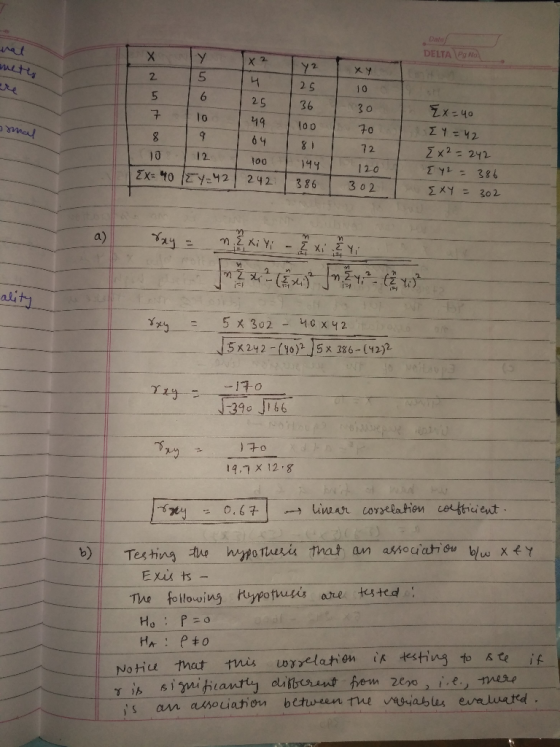 Date
DELTA
X Y X² Y² XY
2 5 4 25 10
5 6 25 36 30
7 10 49 100 70
8 9 64 81 72
10 12 100 144 120
ΣX=40 ΣY=42 242 386 302
ΣX=40
ΣY=42
ΣX²=242
ΣY² = 386
ΣXY = 302
ormal
ality
a) rxy = n Σⁿᵢ₌₁ xi yi - Σⁿᵢ₌₁ xi Σⁿᵢ₌₁ yi / √(n Σⁿᵢ₌₁ xi² - (Σⁿᵢ₌₁ xi)²) √(n Σⁿᵢ₌₁ yi² - (Σⁿᵢ₌₁ yi)²)
rxy = 5 x 302 - 40 x 42 / √(5 x 242 - (40)²) √(5 x 386 - (42)²)
rxy = -170 / √-390 √166
rxy = 170 / 19.7 x 12.8
rxy = 0.67 → linear correlation coefficient.
b) Testing the hypothesis that an association b/w X & Y
Exists -
The following Hypothesis are tested :
H₀ : ρ = 0
Hᴀ : ρ ≠ 0
Notice that this correlation is testing to see if
r is significantly different from zero, i.e., there
is an association between the variables evaluated.